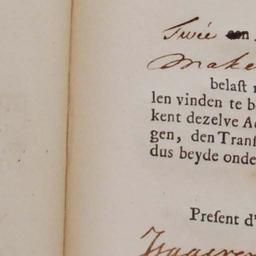 Twée een
Make
belaſt
len vinden te b
kent dezelve A
gen, den Tranſ
dus beyde onde
Preſent d'